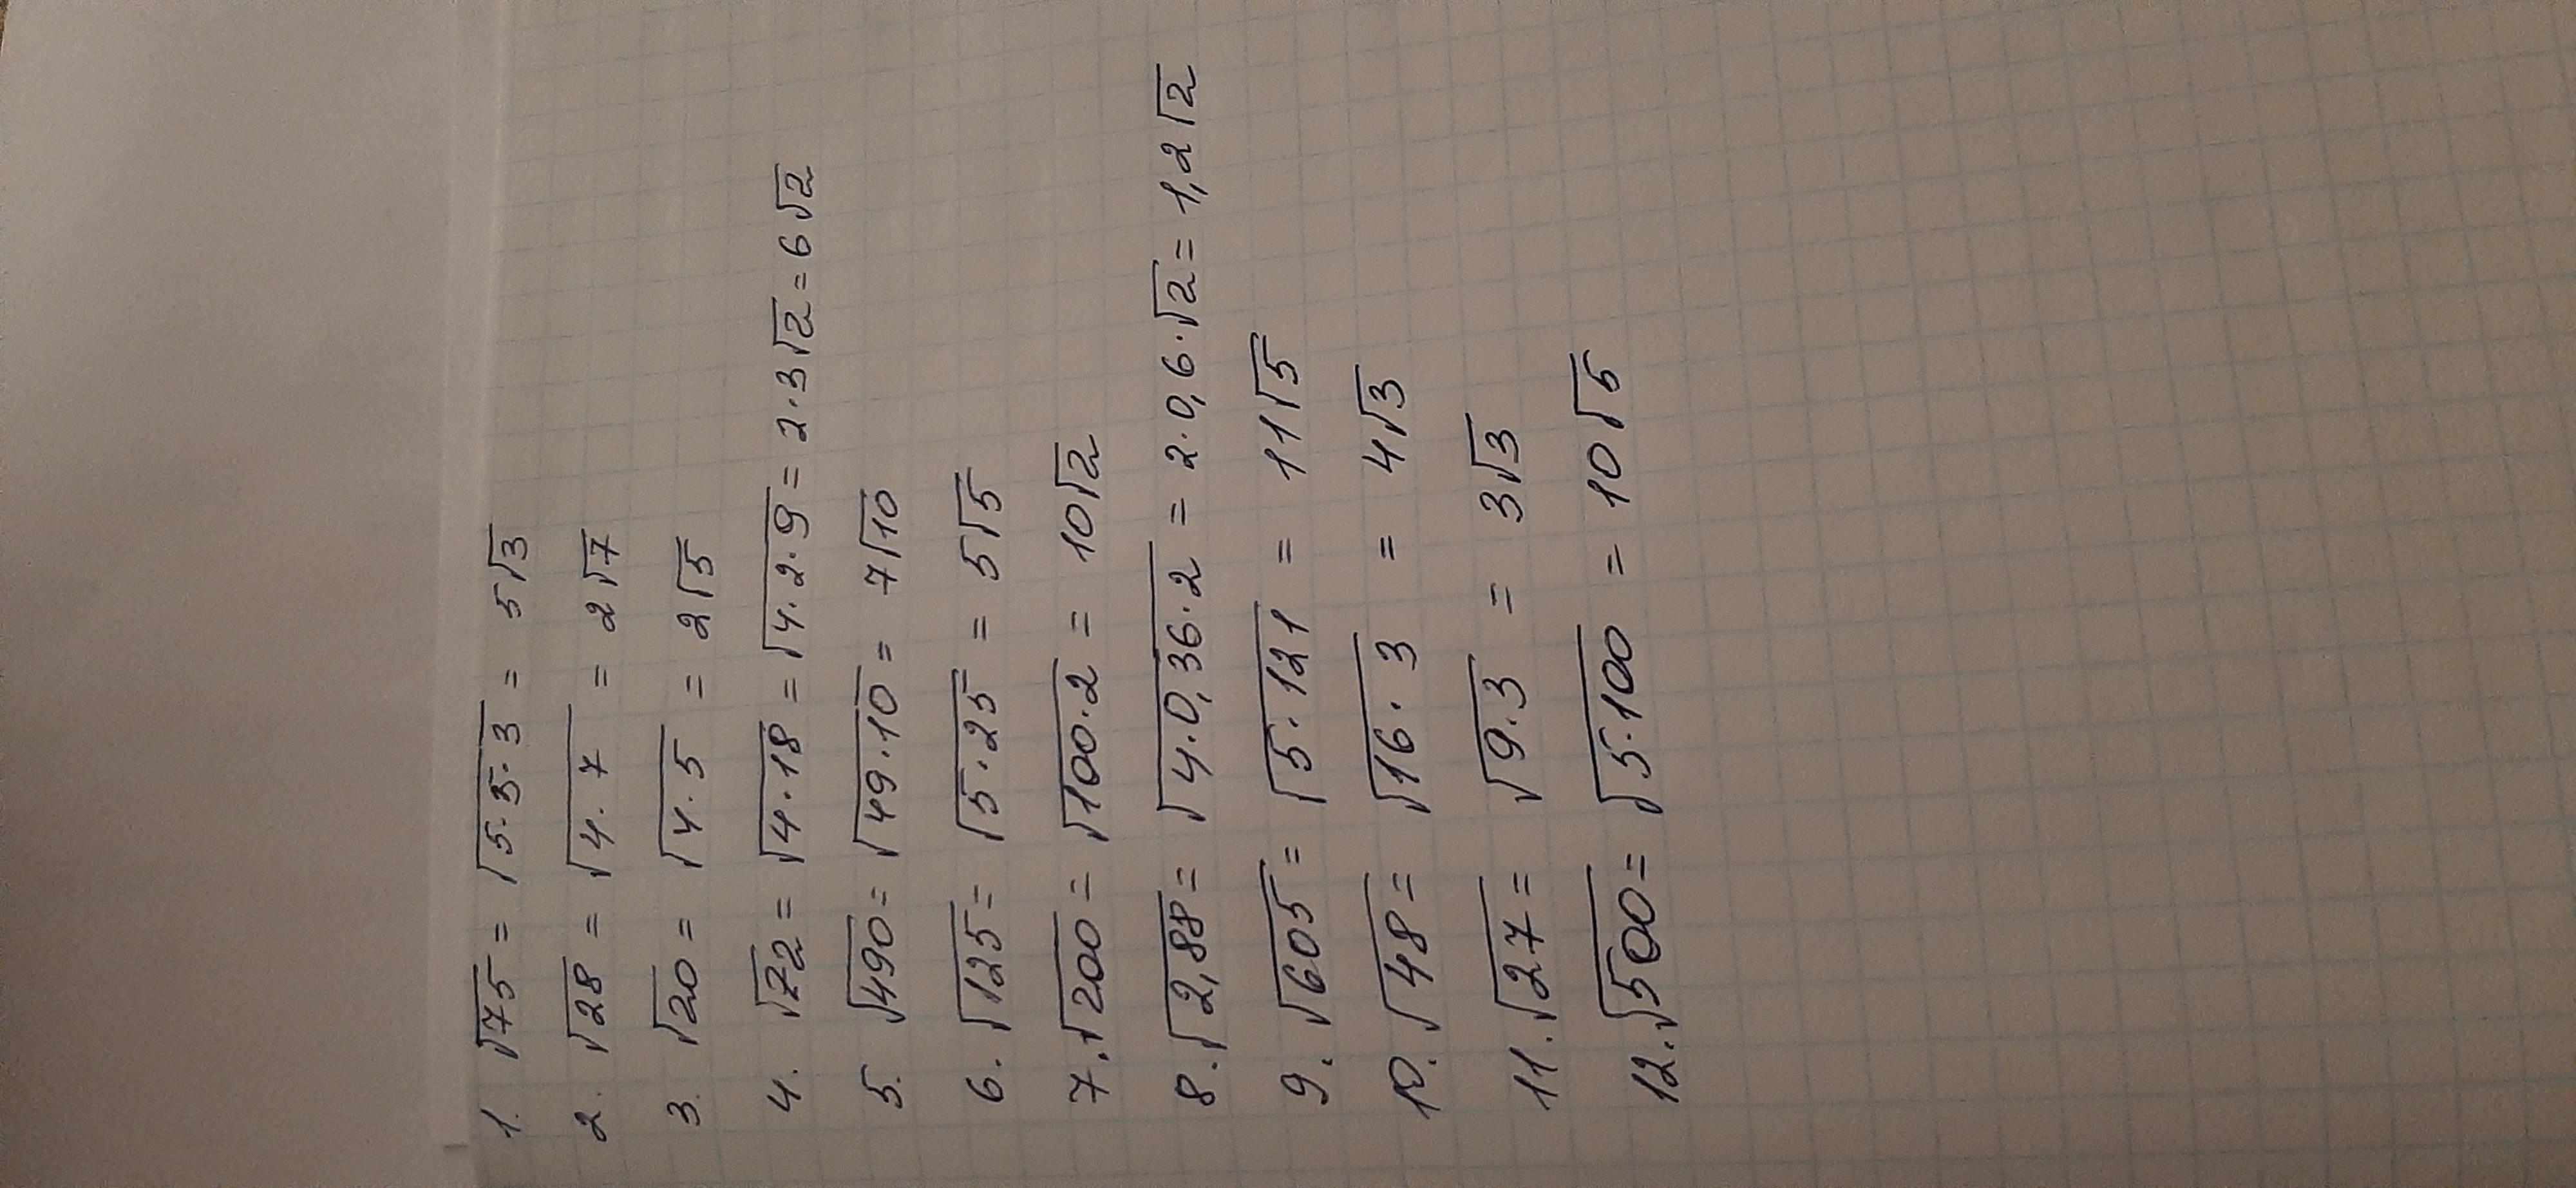 1. √75 = √5·5·3 = 5√3
2. √28 = √4·7 = 2√7
3. √20 = √4·5 = 2√5
4. √72 = √4·18 = √4·2·9 = 2·3√2 = 6√2
5. √490 = √49·10 = 7√10
6. √125 = √5·25 = 5√5
7. √200 = √100·2 = 10√2
8. √2,88 = √4·0,36·2 = 2·0,6·√2 = 1,2√2
9. √605 = √5·121 = 11√5
10. √48 = √16·3 = 4√3
11. √27 = √9·3 = 3√3
12. √500 = √5·100 = 10√5